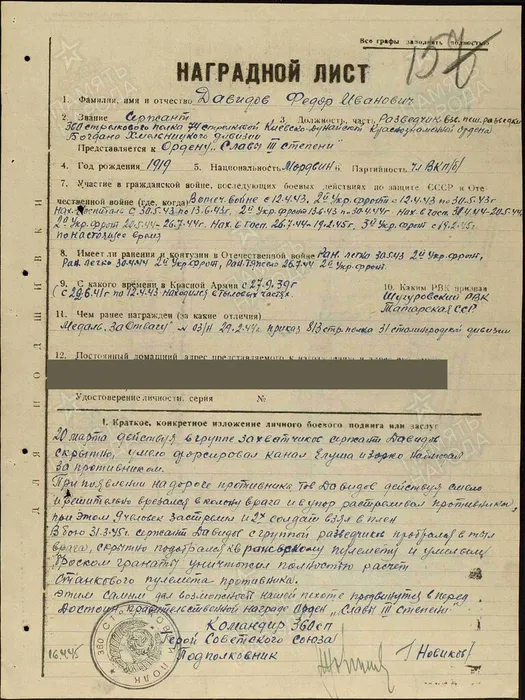 Все графы заполнять полностью
157
НАГРАДНОЙ ЛИСТ
1. Фамилия, имя и отчество Давидов Федор Иванович
2. Звание Сержант 3. Должность, часть Разведчик взв. пеш. разведки
360 стрелкового полка 74 стрелковой Киевско-Дунайской Краснознаменной ордена
Богдана Хмельницкого дивизии
Представляется к Ордену "Славы III степени"
4. Год рождения 1919 5. Национальность Мордвин 6. Партийность чл ВКП(б)
7. Участие в гражданской войне, последующих боевых действиях по защите СССР и Оте-
чественной войне (где, когда) В отеч. войне с 12.4.43. 2й Укр. фронт с 12.4.43 по 30.5.43г
Нах. в госпитале с 30.5.43 по 13.6.43г. 2й Укр. фронт 13.6.43 по 30.4.44г Нах в госп. 30.4.44-20.5.44г
2й Укр. фронт 20.5.44-26.7.44г. Нах. в госп. 26.7.44-19.2.45г. 3й Укр. фронт с 19.2.45г
по настоящее время
8. Имеет ли ранения и контузии в Отечественной войне Ран. легко 30.5.43 2й Укр. фронт,
Ран. легко 30.4.44 2й Укр. фронт, Ран. тяжело 26.7.44 2й Укр. фронт.
9. С какого времени в Красной Армии с 27.9.39г 10. Каким РВК призван
(с 29.6.41г по 12.4.43 находился в тыловых частях. Шугуровский РВК
Татарская ССР
11. Чем ранее награжден (за какие отличия)
Медаль "За Отвагу" № 03/н 29.2.44г приказ 813 стр. полка 31 сталинградской дивизии
12. Постоянный домашний адрес представляемого к
Удостоверение личности, серия №
I. Краткое, конкретное изложение личного боевого подвига или заслуг
20 марта действуя в группе захватчиков сержант Давидов
скрытно, умело форсировал канал Елуша и зорко наблюдал
за противником.
При появлении на дороге противника тов Давидов действуя смело
и решительно врезался в колонну врага и в упор расстреливал противника,
при этом 9 человек застрелил и 2х солдат взял в плен
В бою 31.3.45г. сержант Давидов с группой разведчиков пробрался в тыл
врага, скрытно подобрался к вражескому пулемету и умелым
броском гранаты уничтожил полностью расчет
станкового пулемета противника.
Этим самым дал возможность нашей пехоте продвинутся вперед.
Достоин, правительственной награде Орден "Славы III степени"
Командир 360 сп
Герой Советского Союза
Подполковник Новиков
16.4.45
ДЛЯ ПОДШИВКИ
360 СТРЕЛКОВЫЙ ПОЛК
ПАМЯТЬ НАРОДА